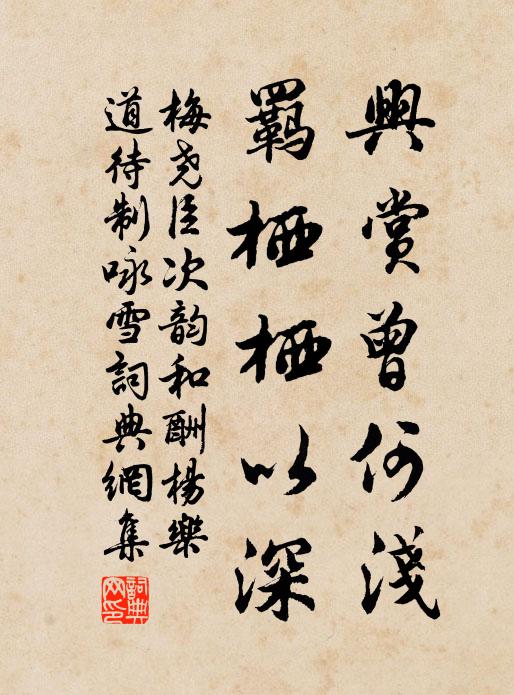 興賞曾何淺
羈栖栖以深
梅堯臣次韵和酬楊樂
道待制咏雪詞典網集
詞典网印